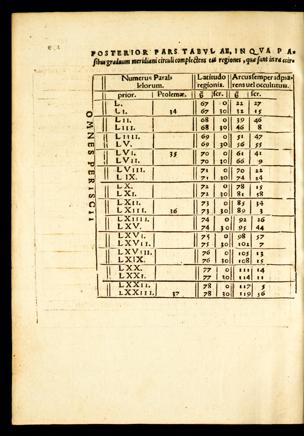 POSTERIOR PARS TABVLAE, IN QVA PA-
sibus graduum meridiani circuli complectens eas regiones, quæ sunt intra
Numerus Paral- Latitudo Arcus semper id
lelorum. regionis. rens vel occultum.
prior. Ptolemæ. g̃ scr. g̃ scr.
L. 67 0 22 27
LI. 34 67 30 32 15
LII. 68 0 39 46
LIII. 68 30 46 8
LIIII. 69 0 51 47
LV. 69 30 56 55
LVI. 35 70 0 61 41
LVII. 70 30 66 9
LVIII. 71 0 70 22
LIX. 71 30 74 24
LX. 72 0 78 15
LXI. 72 30 81 58
LXII. 73 0 85 34
LXIII. 36 73 30 89 3
LXIIII. 74 0 92 26
LXV. 74 30 95 44
LXVI. 75 0 98 57
LXVII. 75 30 102 7
LXVIII. 76 0 105 13
LXIX. 76 30 108 15
LXX. 77 0 111 14
LXXI. 77 30 114 11
LXXII. 78 0 117 5
LXXIII. 37 78 30 119 56
OMNES PERISCII